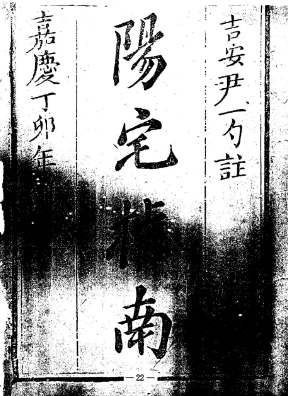 吉安尹一勺註
陽宅指南
嘉慶丁卯年
— 22 —